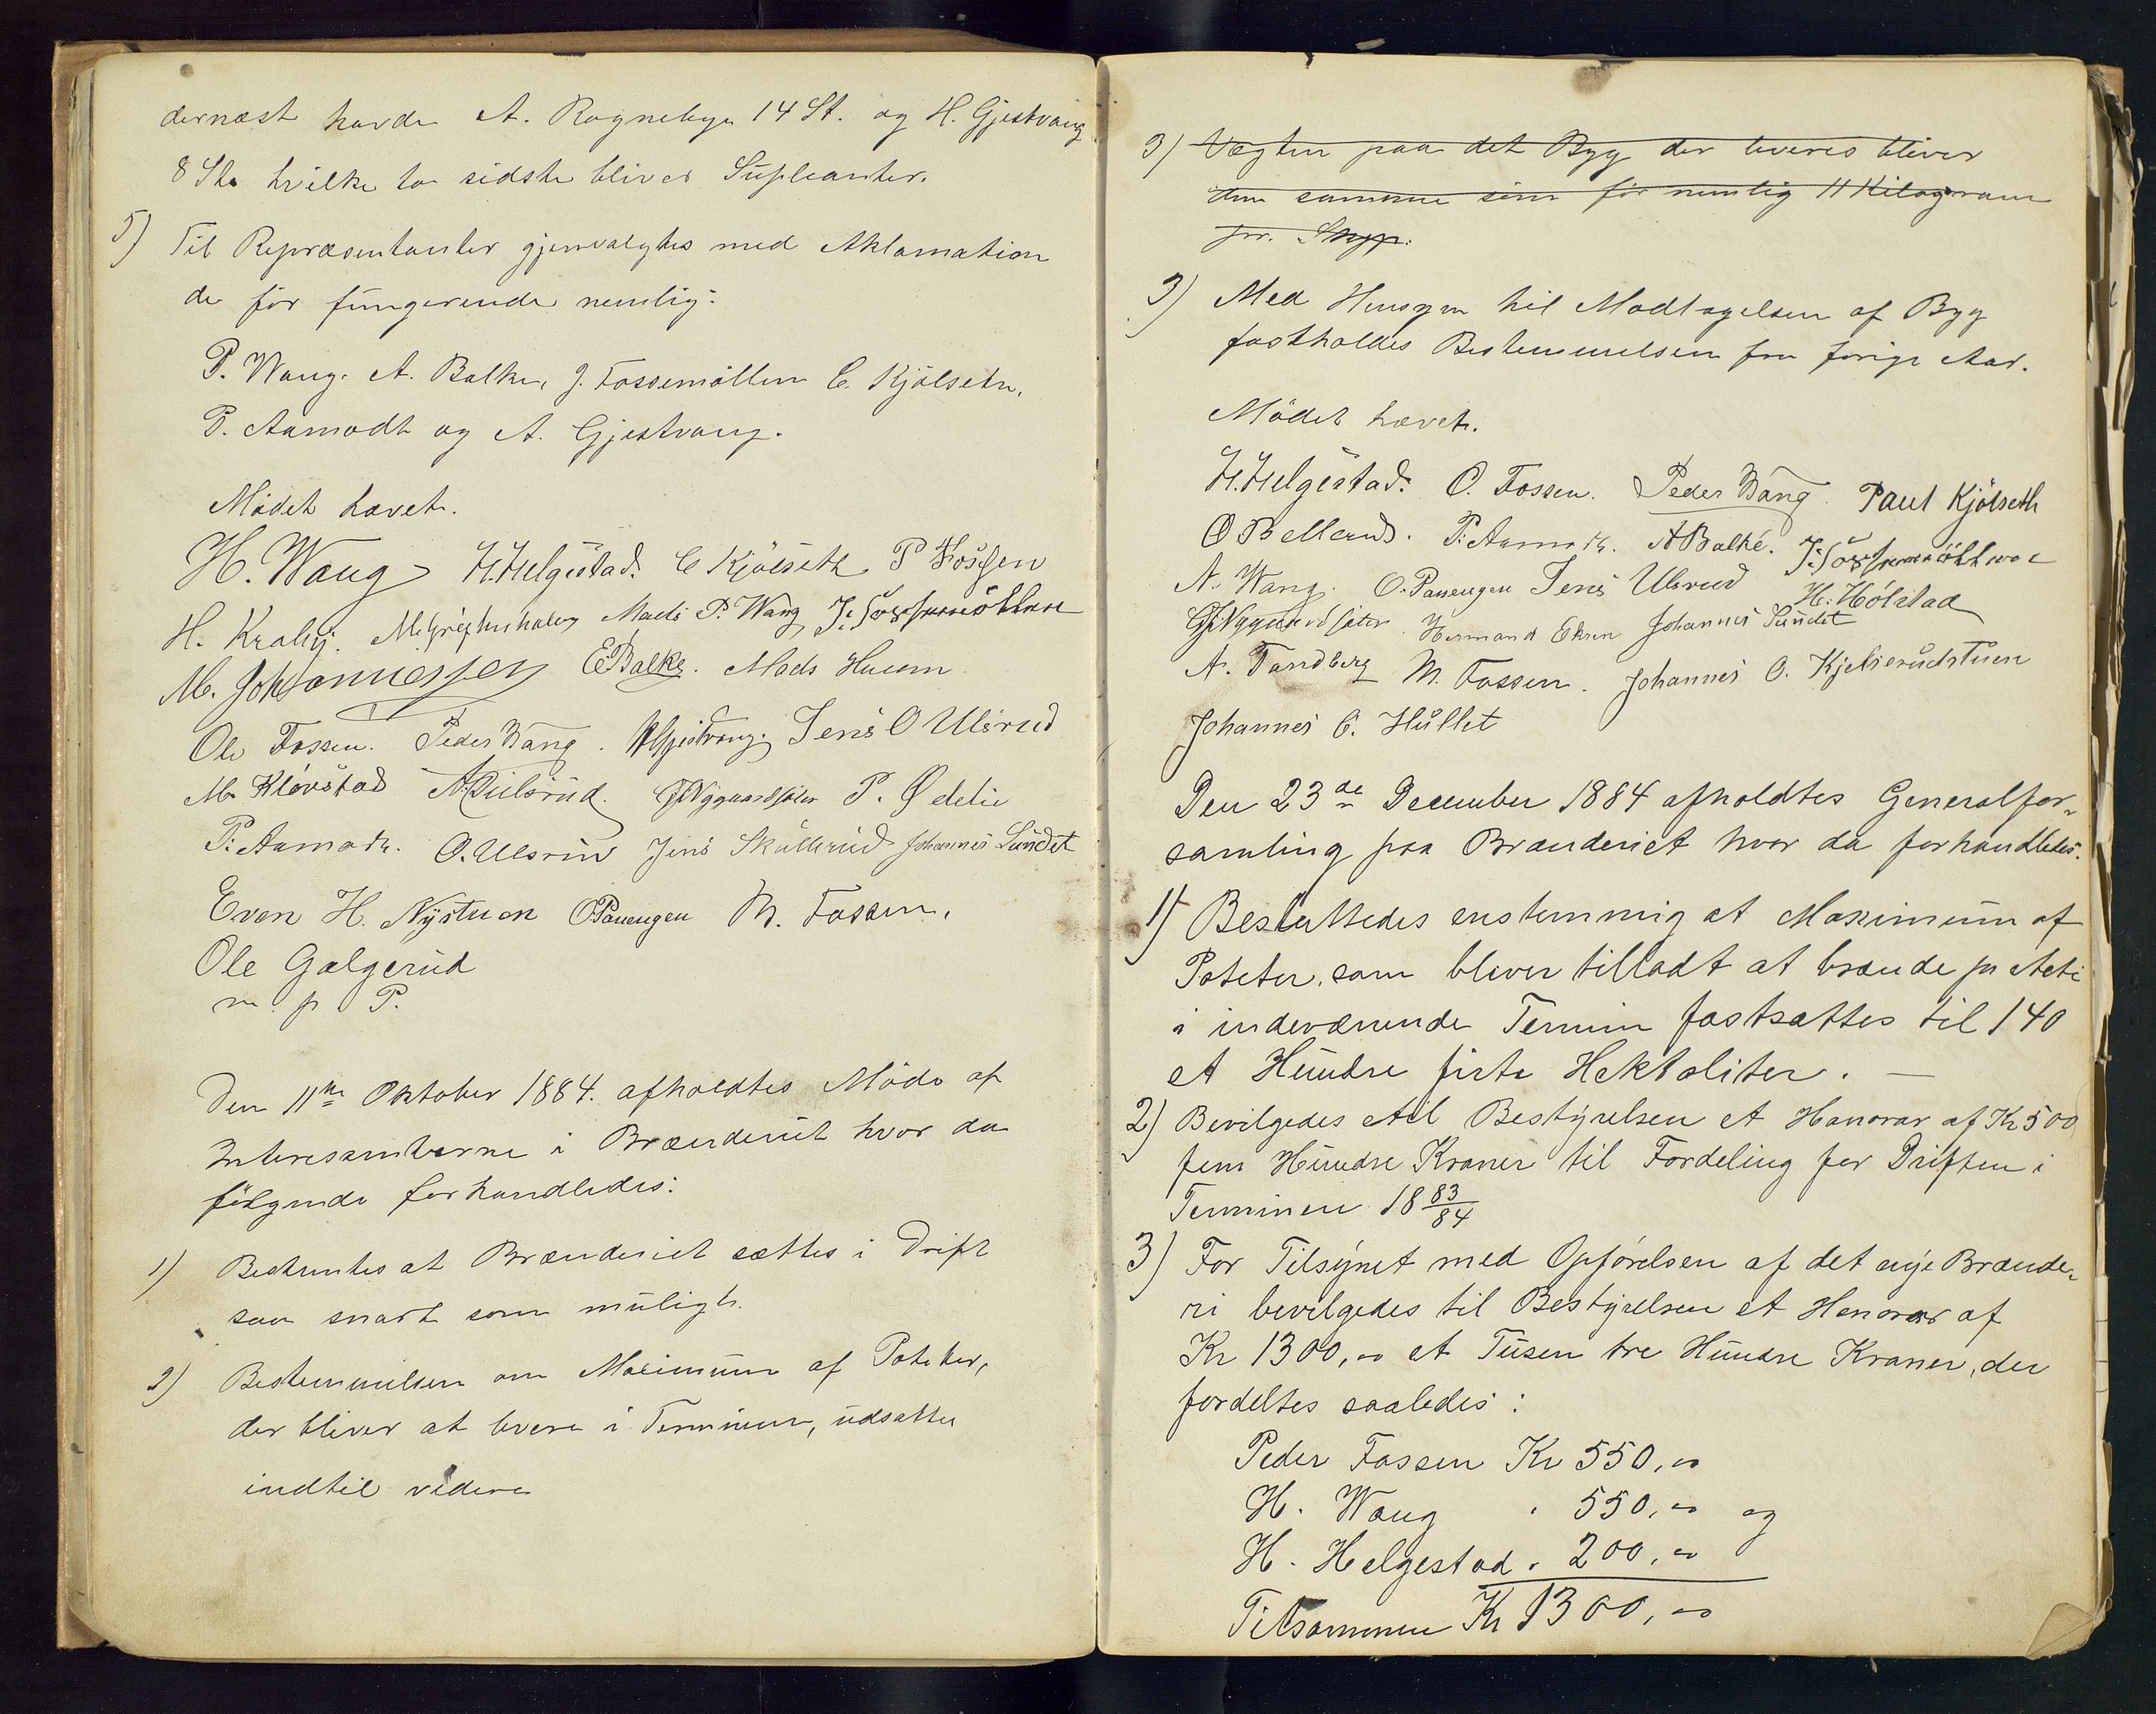 dernæst havde A. Rognebye 14 St. og H. Gjestvang
8 St. hvilke to sidste bliver Supleanter.
5) Til Repræsentanter gjenvalgtes med Aklamation
de før fungerende nemlig:
P. Wang. A. Balke, J. Fossemøllen C. Kjølseth,
P. Aamodt og A. Gjestvang.
Mødet hævet.
H. Wang H. Helgestad. C Kjölseth P Fossen
H. Kraby. Mads P. Wang J: Fossemöllen
M. Johannessen E Balke. Mads Huem
Ole Fossen. Peder Wang. A Gjestvang. Jens O Ulsrud
M. Klövstad P. Ødelie
P. Aamodt. O. Ulsrud Jens Skullerud Johannes Sundet
Even H. Nystuen O Panengen M. Fossen.
Ole Gælgerud
m p P.
Den 11te Oktober 1884. afholdtes Møde af
Interesenterne i Brænderiet hvor da
følgende forhandledes:
1) Bestemtes at Brænderiet sættes i Drift
saa snart som muligt.
2) Bestemmelsen om Maximum af Poteter,
der bliver at levere i Terminen, udsattes
indtil videre
3) Vægten paa det Byg der leveres bliver
den samme som før nemlig 11 Kilogram
pr. Skjp.
3) Med Hensyn til Modtagelsen af Byg
fastholdes Bestemmelsen fra forige Aar.
Mødet hævet.
H. Helgestad. O. Fossen. Peder Wang. Paul Kjölseth
O Bellerud. P. Aamodt. A Balke. J: Fossemöllen
N. Wang. O. Panengen Jens Ulsrud H. Hólstad
Hermand Ekren Johannes Sundet
A. Tandberg M. Fossen. Johannes O. Kjelserudstuen
Johannes C. Hullet
Den 23de December 1884 afholdtes Generalfor-
samling paa Brænderiet hvor da forhandledes.
1) Besluttedes enstemmig at Maximum af
Poteter, som bliver tilladt at brænde pr Actie
i indeværende Termin fastsattes til 140
et Hundre firti Hektoliter. —
2) Bevilgedes til Bestyrelsen et Honorar af Kr 500
fem Hundre Kroner til Fordeling for Driften i
Terminen 18 83/84
3) For Tilsynet med Opførelsen af det nye Brænde-
ri bevilgedes til Bestyrelsen et Honorar af
Kr 1300,00 et Tusen tre Hundre Kroner, der
fordeltes saaledes:
Peder Fossen Kr 550,00
H. Wang " 550,00 og
H. Helgestad " 200,00
Tilsammen Kr 1300,00